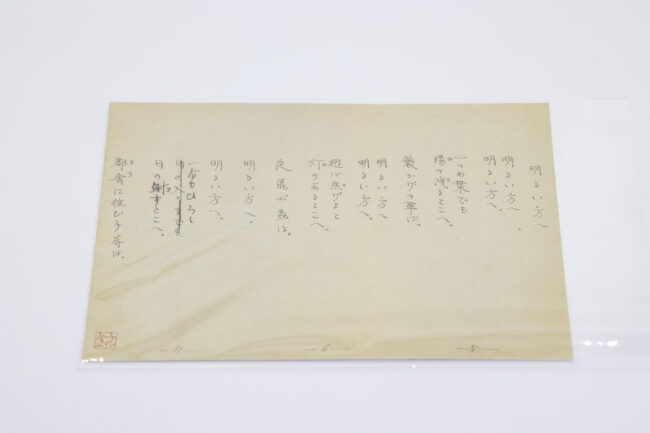 明るい方へ
明るい方へ
明るい方へ。
一つの葉でも
陽の洩るとこへ。
藪かげの草は。
明るい方へ
明るい方へ。
翅は焦げよと
灯のあるとこへ。
夜飛ぶ蟲は。
明るい方へ
明るい方へ。
一分もひろく
日の射すとこへ。
都會に住む子等は。
5
6
7